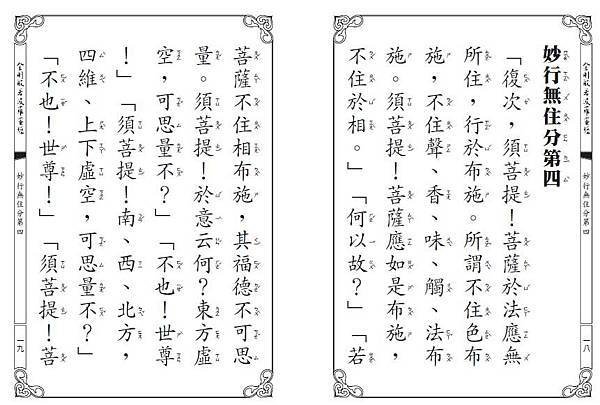 金剛般若波羅蜜經
妙行無住分第四
一八
妙行無住分第四
「復次，須菩提！菩薩於法應無
所住，行於布施。所謂不住色布
施，不住聲、香、味、觸、法布
施。須菩提！菩薩應如是布施，
不住於相。」「何以故？」「若
菩薩不住相布施，其福德不可思
量。須菩提！於意云何？東方虛
空，可思量不？」「不也！世尊
！」「須菩提！南、西、北方，
四維、上下虛空，可思量不？」
「不也！世尊！」「須菩提！菩
金剛般若波羅蜜經
妙行無住分第四
一九